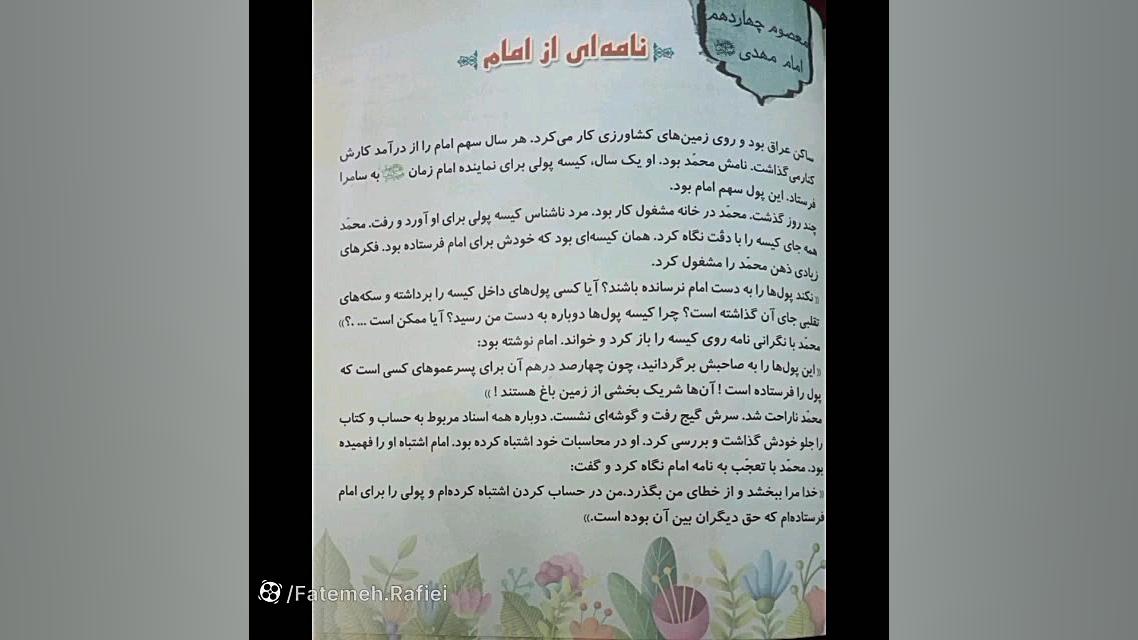 معصوم چهاردهم
امام مهدی
نامه‌ای از امام
ساکن عراق بود و روی زمین‌های کشاورزی کار می‌کرد. هر سال سهم امام را از درآمد کارش
کنار می‌گذاشت. نامش محمّد بود. او یک سال، کیسه پولی برای نماینده امام زمان به سامرا
فرستاد. این پول سهم امام بود.
چند روز گذشت. محمّد در خانه مشغول کار بود. مرد ناشناس کیسه پولی برای او آورد و رفت. محمّد
همه جای کیسه را با دقّت نگاه کرد. همان کیسه‌ای بود که خودش برای امام فرستاده بود. فکرهای
زیادی ذهن محمّد را مشغول کرد.
«نکند پول‌ها را به دست امام نرسانده باشند؟ آیا کسی پول‌های داخل کیسه را برداشته و سکه‌های
تقلبی جای آن گذاشته است؟ چرا کیسه پول‌ها دوباره به دست من رسید؟ آیا ممکن است ... .؟»
محمّد با نگرانی نامه روی کیسه را باز کرد و خواند. امام نوشته بود:
«این پول‌ها را به صاحبش برگردانید، چون چهارصد درهم آن برای پسرعموهای کسی است که
پول را فرستاده است! آن‌ها شریک بخشی از زمین باغ هستند!»
محمّد ناراحت شد. سرش گیج رفت و گوشه‌ای نشست. دوباره همه اسناد مربوط به حساب و کتاب
را جلو خودش گذاشت و بررسی کرد. او در محاسبات خود اشتباه کرده بود. امام اشتباه او را فهمیده
بود. محمّد با تعجّب به نامه امام نگاه کرد و گفت:
«خدا مرا ببخشد و از خطای من بگذرد.من در حساب کردن اشتباه کرده‌ام و پولی را برای امام
فرستاده‌ام که حق دیگران بین آن بوده است.»
/Fatemeh.Rafiei